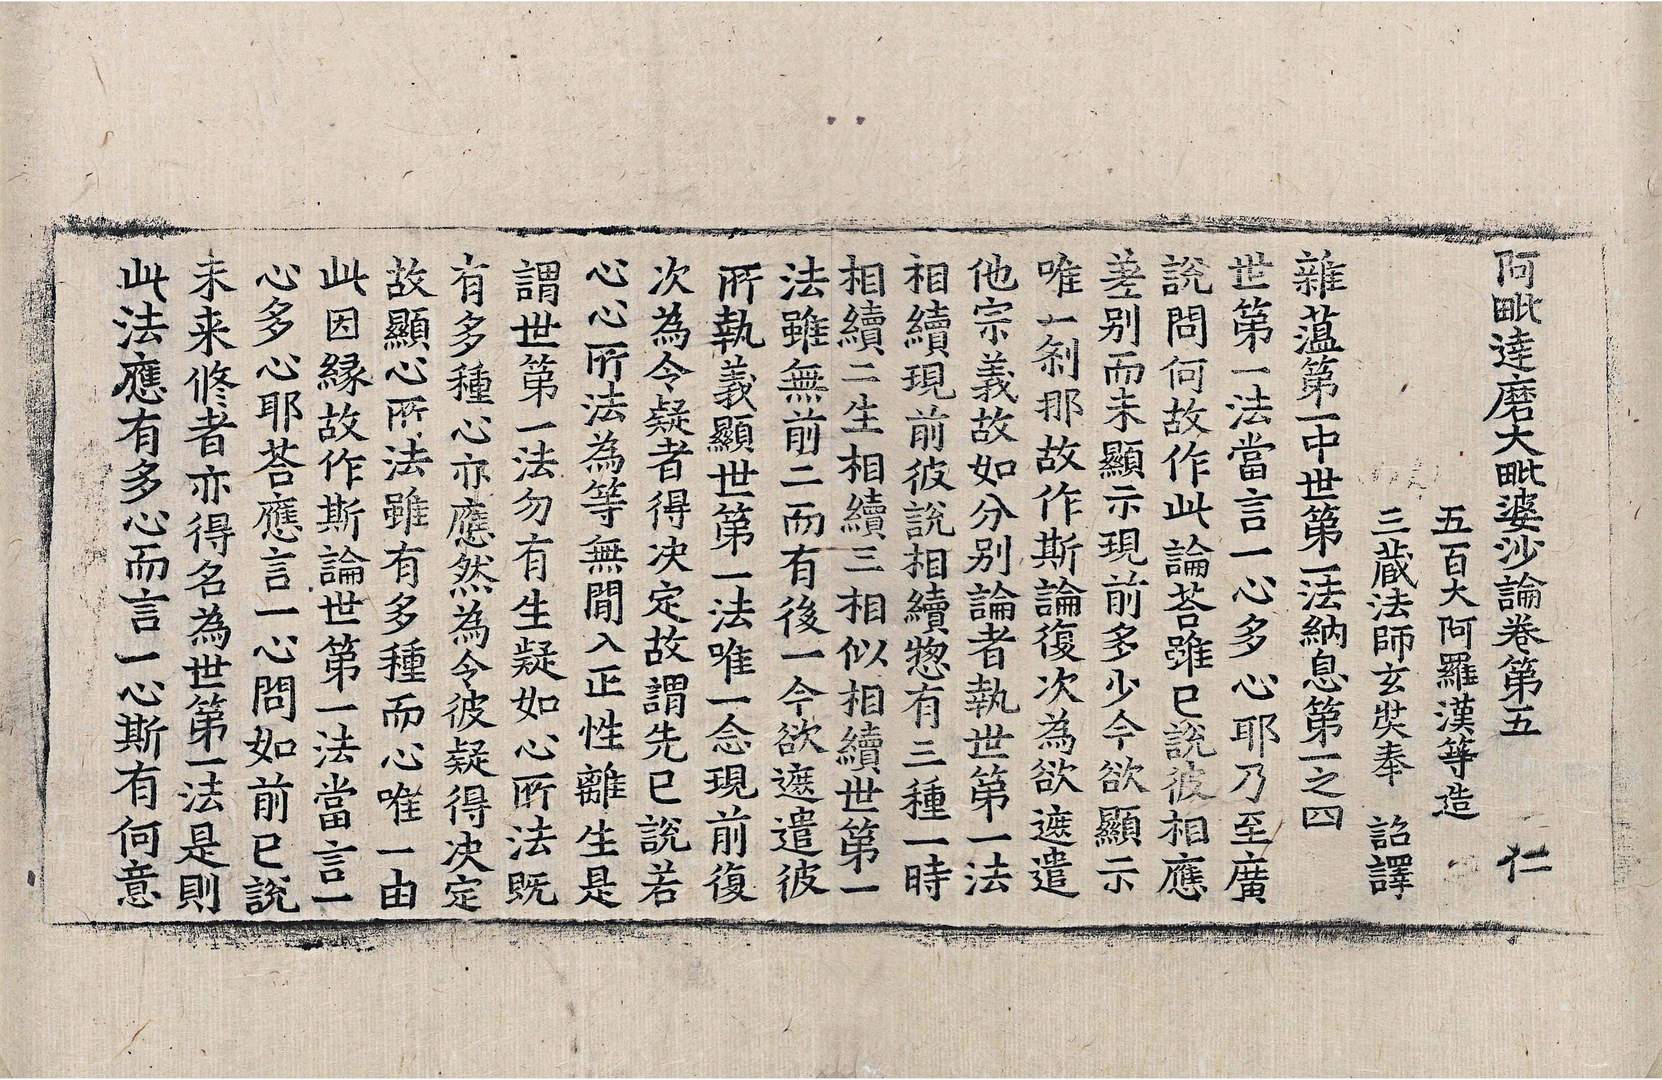 阿毗達磨大毗婆沙論卷第五 仁
五百大阿羅漢等造
三藏法師玄奘奉 詔譯
雜蘊第一中世第一法納息第一之四
世第一法當言一心多心耶乃至廣
說問何故作此論荅雖已說彼相應
差別而未顯示現前多少今欲顯示
唯一剎那故作斯論復次為欲遮遣
他宗義故如分別論者執世第一法
相續現前彼說相續惣有三種一時
相續二生相續三相似相續世第一
法雖無前二而有後一今欲遮遣彼
所執義顯世第一法唯一念現前復
次為令疑者得决定故謂先已說若
心心所法為等無間入正性離生是
謂世第一法勿有生疑如心所法既
有多種心亦應然為令彼疑得决定
故顯心所法雖有多種而心唯一由
此因緣故作斯論世第一法當言一
心多心耶荅應言一心問如前已說
未来修者亦得名為世第一法是則
此法應有多心而言一心斯有何意